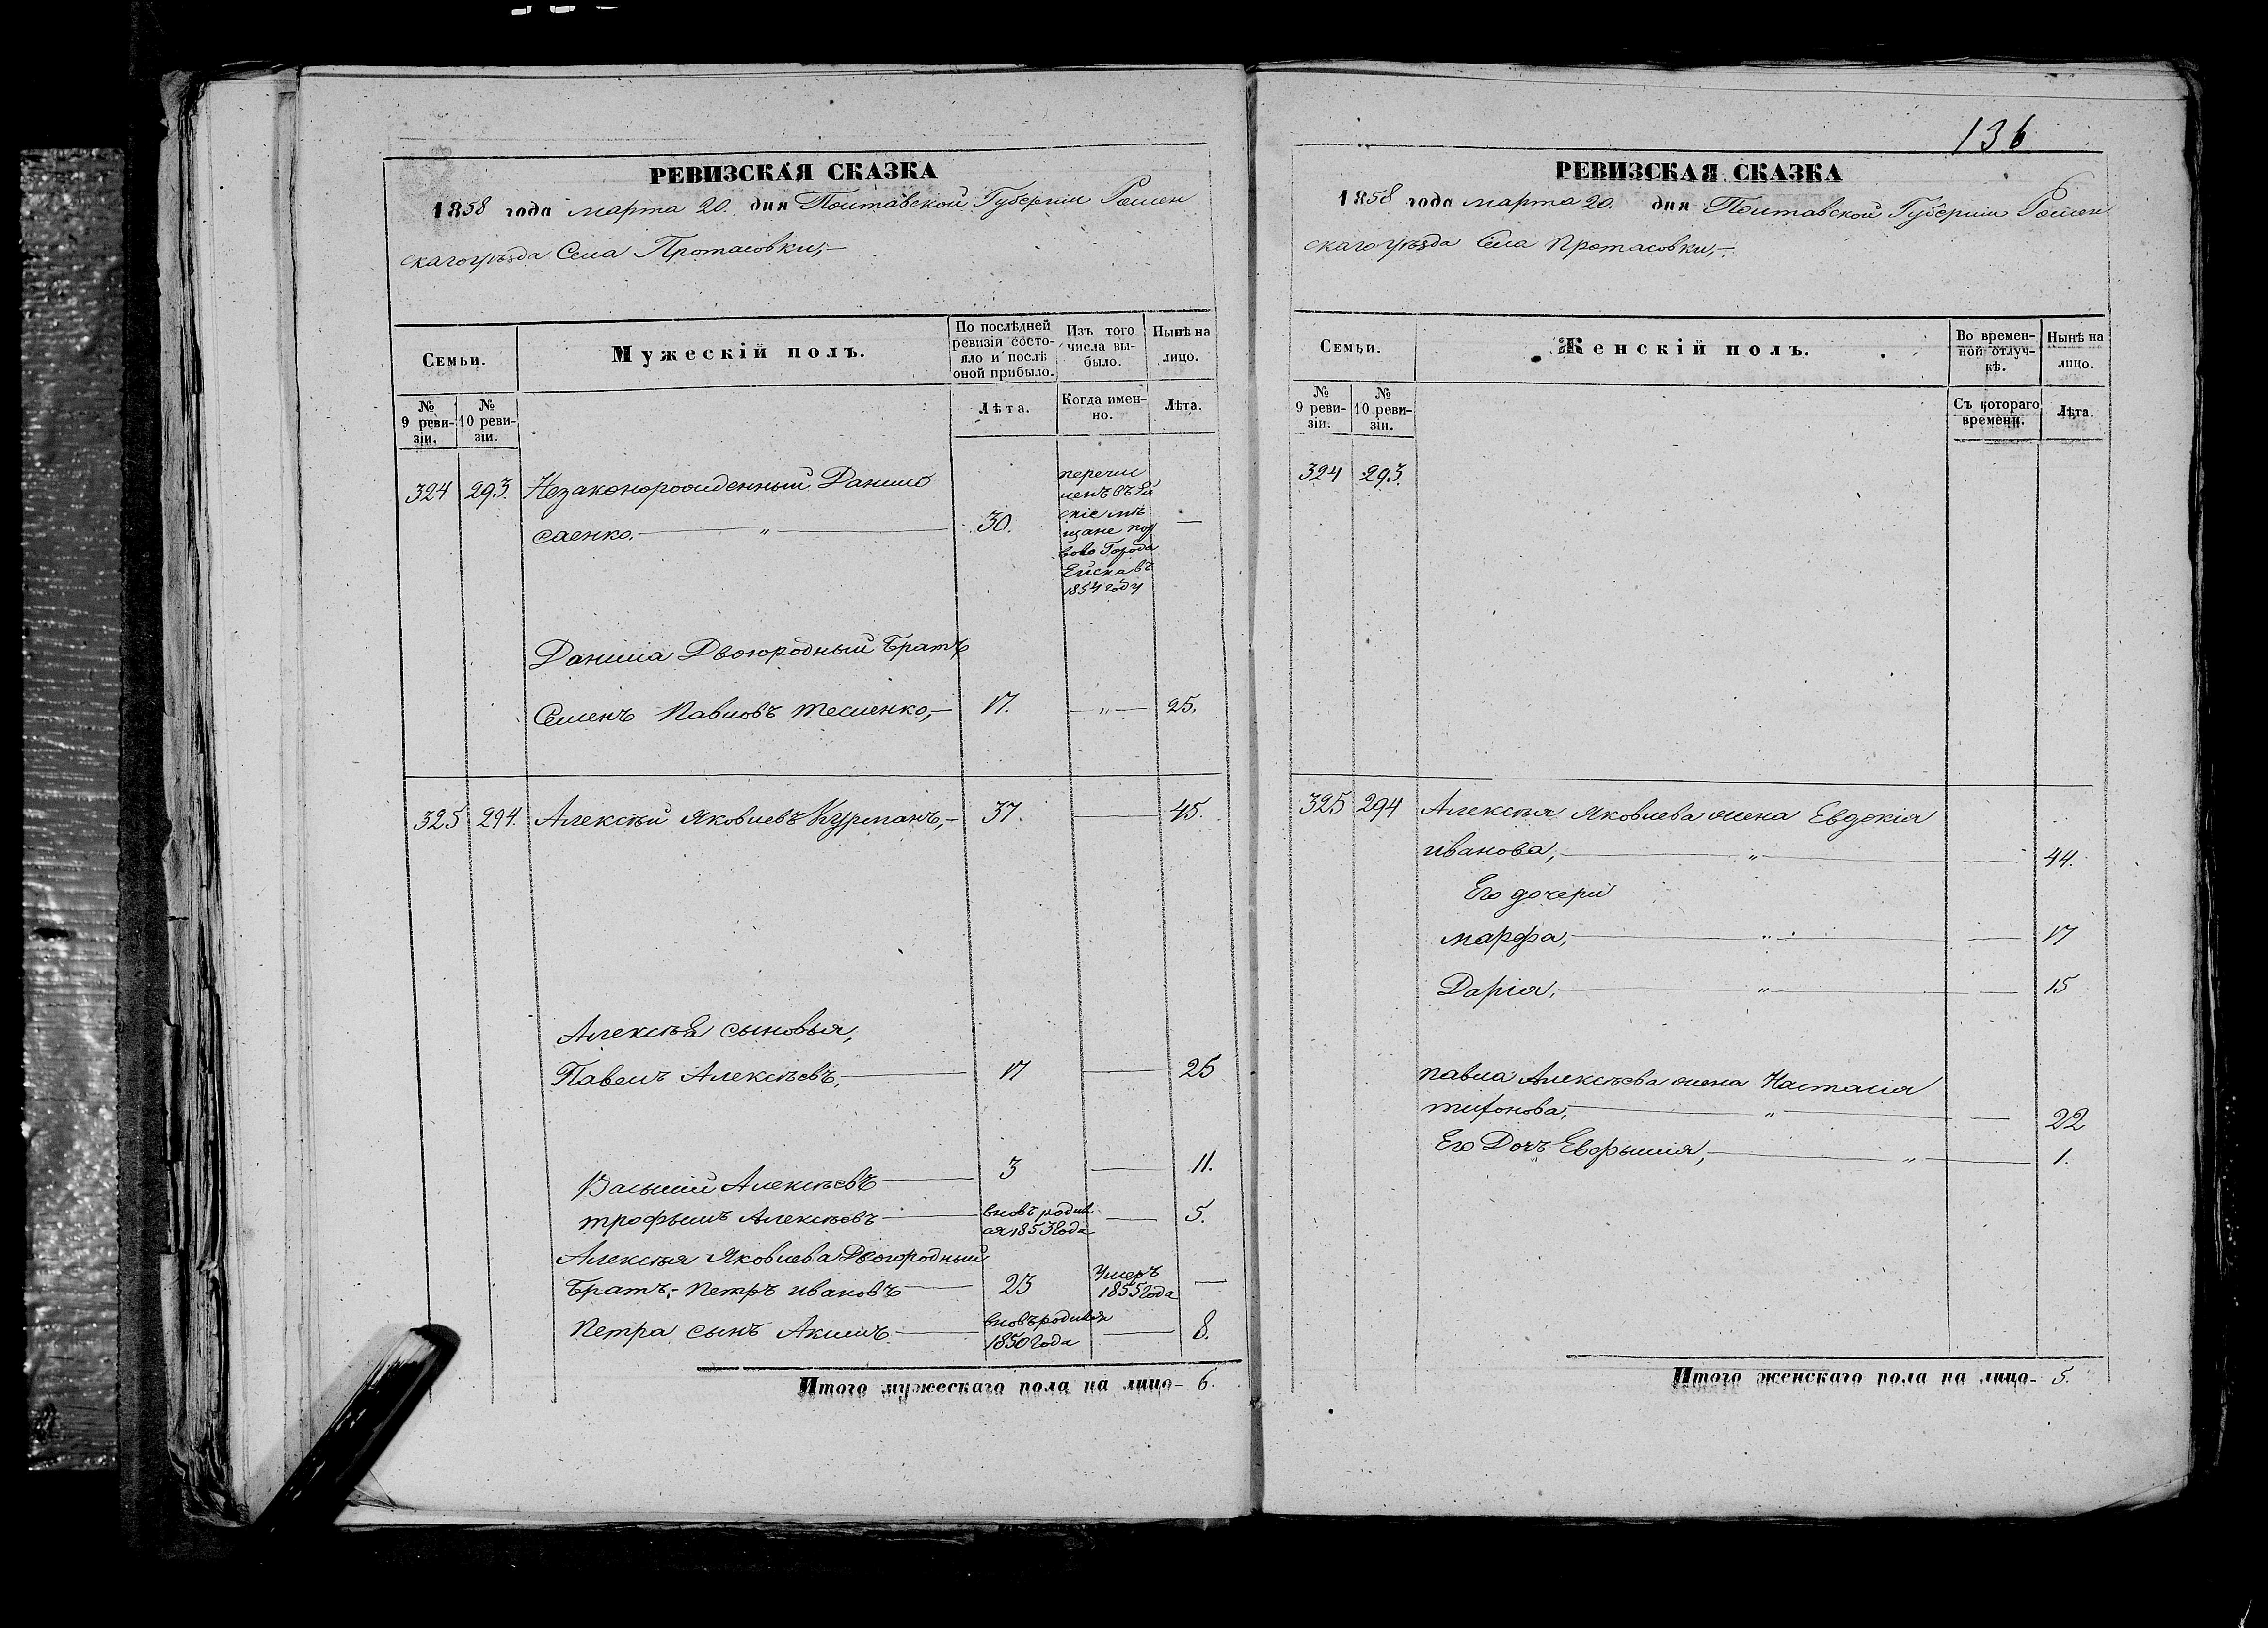 РЕВИЗСКАЯ СКАЗКА
1858 года марта 20. дня Полтавской Губернии Ромен
скаго уѣзда Села Протасовки,—
Семьи.
Мужескій полъ.
По послѣдней ревизіи состояло и послѣ оной прибыло.
Изъ того числа выбыло.
Нынѣ на лицо.
№ 9 ревизіи.
№ 10 ревизіи.
Лѣта.
Когда именно.
Лѣта.
324 293. Незаконорожденный Данило
саенко. — „ — 30. —
перечис
ленъ въ Ей
скіе мѣ
щане
Города
Ейска въ
1854 году
Данила Двоюродный Братъ
Семенъ Павловъ тесленко,— 17. — „ — 25.
325 294. Алексѣй Яковлевъ Курманъ,— 37. — 45.
Алексѣя сыновья,
Павелъ Алексѣевъ, — 17 — 25
Василій Алексѣевъ — 3 — 11.
трофимъ Алексѣевъ — вновь родил
ся 1853 года — 5.
Алексѣя Яковлева Двоюродный
Братъ,- Петръ ивановъ — 23 Умеръ
1855 года —
Петра сынъ Акимъ — вновь родился
1850 года — 8.
Итого мужескаго пола на лицо - 6.
136
РЕВИЗСКАЯ СКАЗКА
1858 года марта 20. дня Полтавской Губернии Ромен
скаго уѣзда Села Протасовки,—
Семьи.
Женскій полъ.
Во временной отлучкѣ.
Нынѣ на лицо.
№ 9 ревизіи.
№ 10 ревизіи.
Съ котораго времени.
Лѣта.
324 293.
325 294 Алексѣя Яковлева жена Евдокія
иванова, — „ — 44.
Его дочери
марфа, — „ — 17
Дарія, — „ — 15
павла Алексѣева жена Настасія
тифонова, — „ — 22
Его Дочь Евфимія, — „ — 1.
Итого женскаго пола на лицо - 5.